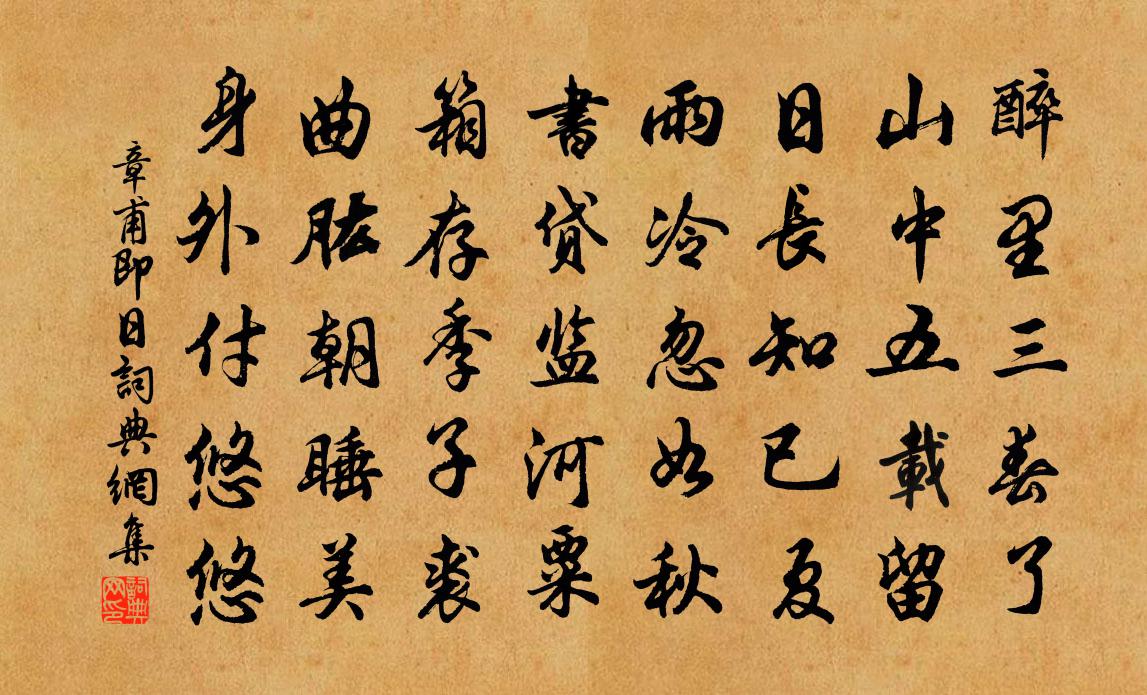 醉里三春了
山中五載留
日長知已夏
雨冷忽如秋
書貸监河粟
箱存季子裘
曲肱朝睡美
身外付悠悠
章甫即日詞典網集
詞典网印